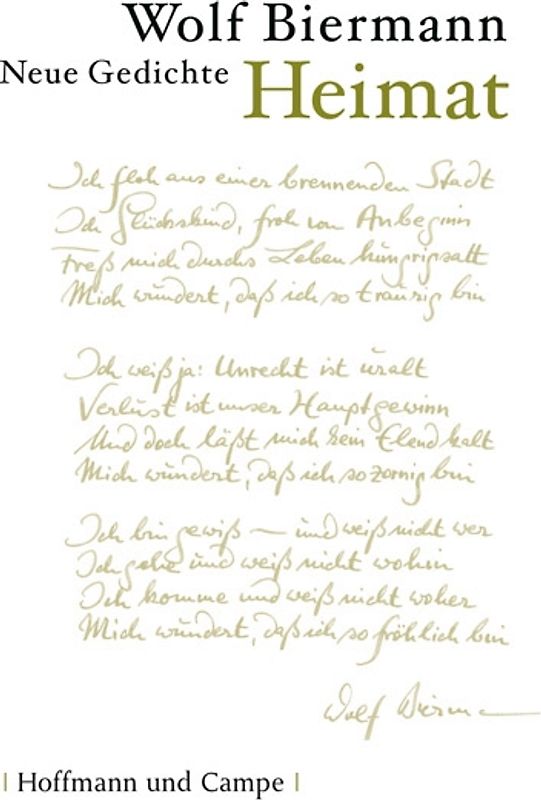 Wolf Biermann
Neue Gedichte Heimat
Ich floh aus einer brennenden Stadt
Ich Glückskind, froh von Anbeginn
Freß mich durchs Leben hungrigsatt
Mich wundert, daß ich so traurig bin
Ich weiß ja: Unrecht ist uralt
Verlust ist unser Hauptgewinn
Und doch läßt mich kein Elend kalt
Mich wundert, daß ich so zornig bin
Ich bin gewiß — und weiß nicht wer
Ich gehe und weiß nicht wohin
Ich komme und weiß nicht woher
Mich wundert, daß ich so fröhlich bin
Wolf Biermann
| Hoffmann und Campe |